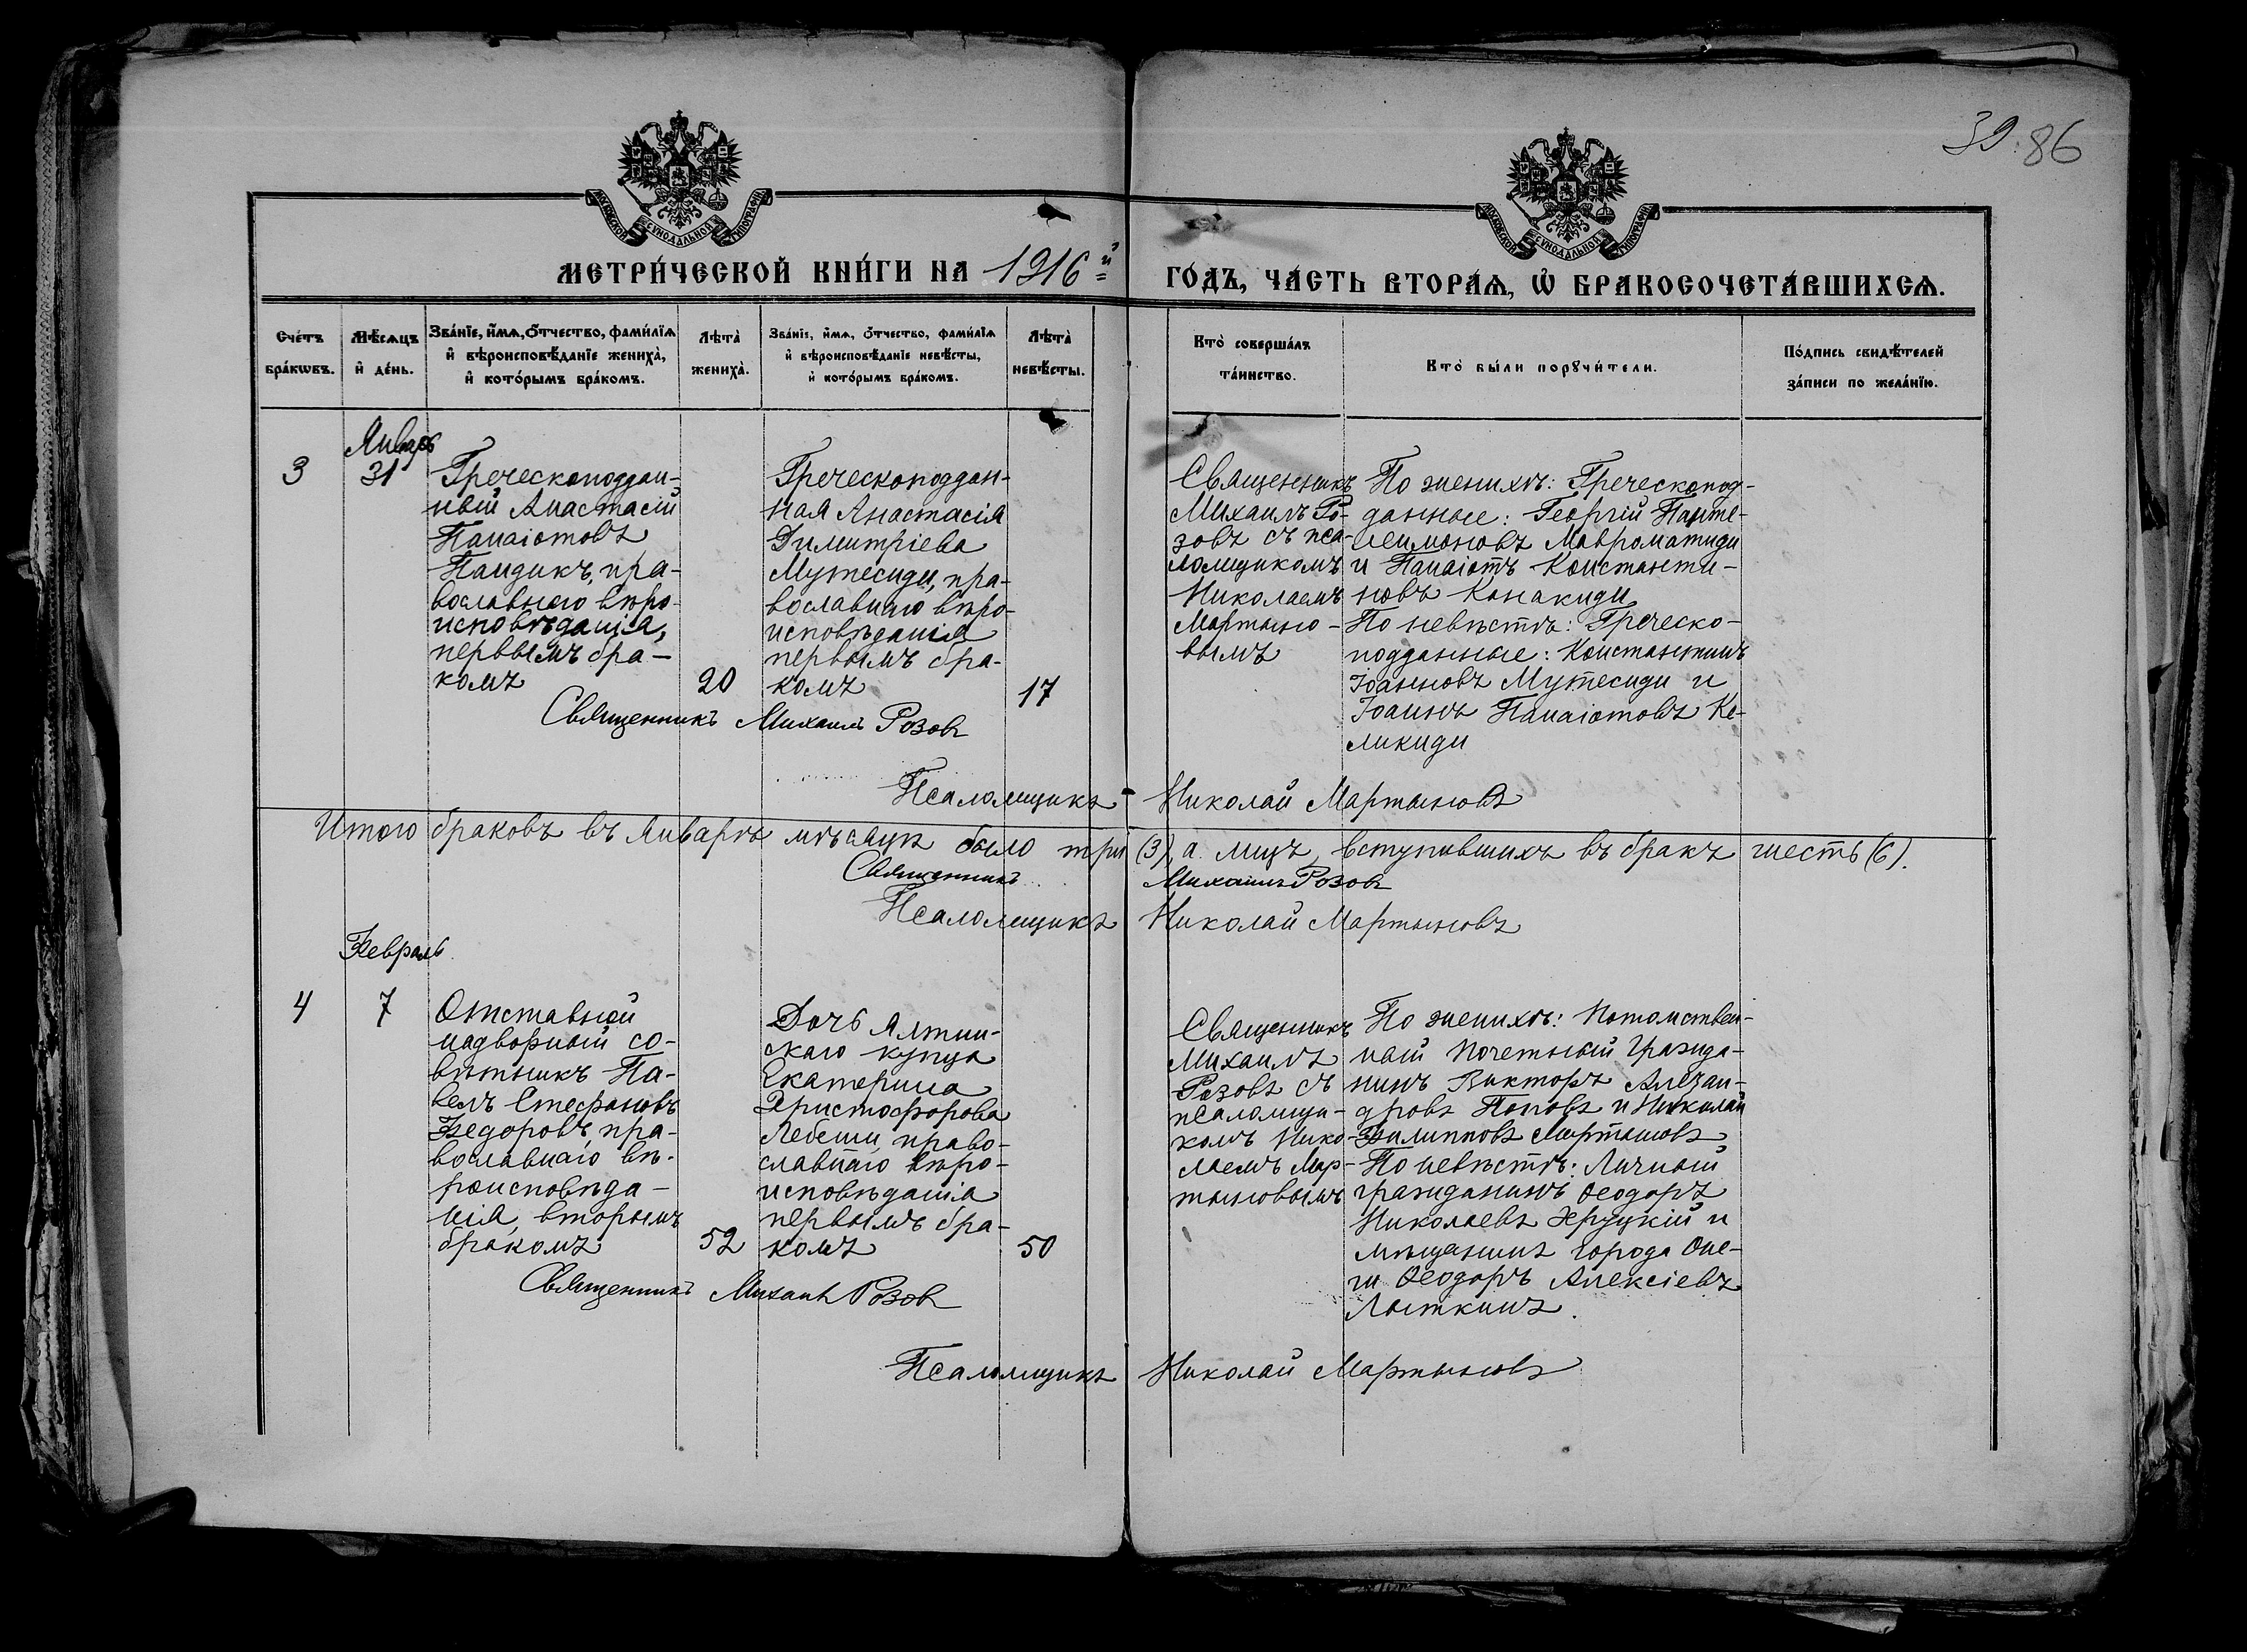 39. 86
МОСКОВСКОЙ СѴНОДАЛЬНОЙ ТИПОГРАФІИ
МОСКОВСКОЙ СѴНОДАЛЬНОЙ ТИПОГРАФІИ
МЕТРИ́ЧЕСКОЙ КНИ́ГИ НА 1916й ГО́ДЪ, ЧА́СТЬ ВТОРА́Ѧ, Ѿ БРАКОСОЧЕТА́ВШИХСѦ.
Сче́тъ бра́кѡвъ.
Мѣ́сѧцъ и҆ де́нь.
Зва́нїе, и҆́мѧ, ѻ҆́тчество, фами́лїѧ
и҆ вѣроисповѣ́данїе жениха̀,
и҆ кото́рымъ бра́комъ.
Лѣта̀ жениха̀.
Зва́нїе, и҆́мѧ, ѻ҆́тчество, фами́лїѧ
и҆ вѣроисповѣ́данїе невѣ́сты,
и҆ кото́рымъ бра́комъ.
Лѣта̀ невѣ́сты.
Кто̀ соверша́лъ
та́инство.
Кто̀ бы́ли порꙋчи́тели.
По́дпись свидѣ́телей
за́писи по жела́нїю.
3
Январь
31
Греческоподдан-
ный Анастасій
Панаіотовъ
Пандикъ, пра-
вославнаго вѣро-
исповѣданія,
первымъ бра-
комъ
20
Греческоподдан-
ная Анастасія
Димитріева
Мутесиди, пра-
вославнаго вѣро-
исповѣданія
первымъ бра-
комъ
17
Священникъ
Михаилъ Ро-
зовъ съ пса-
ломщикомъ
Николаемъ
Мартыно-
вымъ
По женихѣ: Греческопод-
данные: Георгій Панте-
леимоновъ Мавроматиди
и Панаіотъ Константи-
новъ Канакиди
По невѣстѣ: Греческо-
подданные: Константинъ
Іоанновъ Мутесиди и
Іоаннъ Панаіотовъ Ке-
ликиди
Священникъ Михаилъ Розовъ
Псаломщикъ Николай Мартыновъ
Итого браковъ въ Январѣ мѣсяцѣ было три (3), а лицъ, вступившихъ въ бракъ шесть (6).
Священникъ Михаилъ Розовъ
Псаломщикъ Николай Мартыновъ
Февраль
4
7
Отставной
надворный со-
вѣтникъ Па-
велъ Стефановъ
Федоровъ, пра-
вославнаго вѣ-
роисповѣда-
нія, вторымъ
бракомъ
52
Дочь Ялтин-
скаго купца
Екатерина
Христофорова
Лебеши, право-
славнаго вѣро-
исповѣданія
первымъ бра-
комъ
50
Священникъ
Михаилъ
Розовъ съ
псаломщи-
комъ Нико-
лаемъ Мар-
тыновымъ
По женихѣ: Потомствен-
ный Почетный Гражда-
нинъ Викторъ Алезан-
дровъ Поповъ и Николай
Филипповъ Мартыновъ
По невѣстѣ: Личный
гражданинъ Ѳеодоръ
Николаевъ Хруцкій и
мѣщанинъ города Оне-
ги Ѳеодоръ Алексіевъ
Лыткинъ.
Священникъ Михаилъ Розовъ
Псаломщикъ Николай Мартыновъ